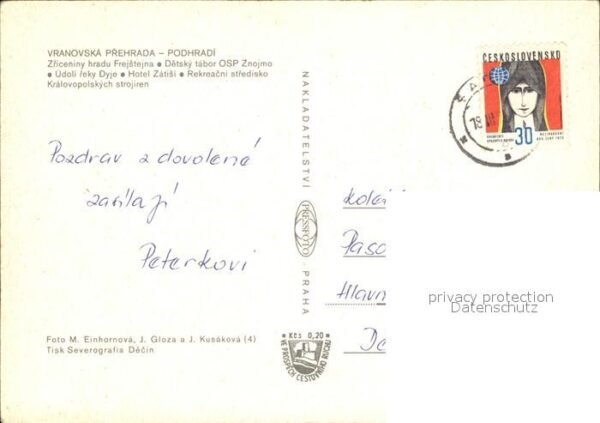 VRANOVSKÁ PŘEHRADA – PODHRADÍ
Zříceniny hradu Frejštejna ● Dětský tábor OSP Znojmo
● Údolí řeky Dyje ● Hotel Zátiší ● Rekreační středisko
Královopolských strojíren
Pozdrav z dovolené
zasílají
Peterkovi
Foto M. Einhornová, J. Gloza a J. Kusáková (4)
Tisk Severografia Děčín
NAKLADATELSTVÍ
PRESSFOTO
PRAHA
Kčs 0,20
VE PROSPĚCH CESTOVNÍHO RUCHU
ČESKOSLOVENSKO
30
MEZINÁRODNÍ
ROK ŽENY 1975
Paso
Hlavn
privacy protection
Darmstadt